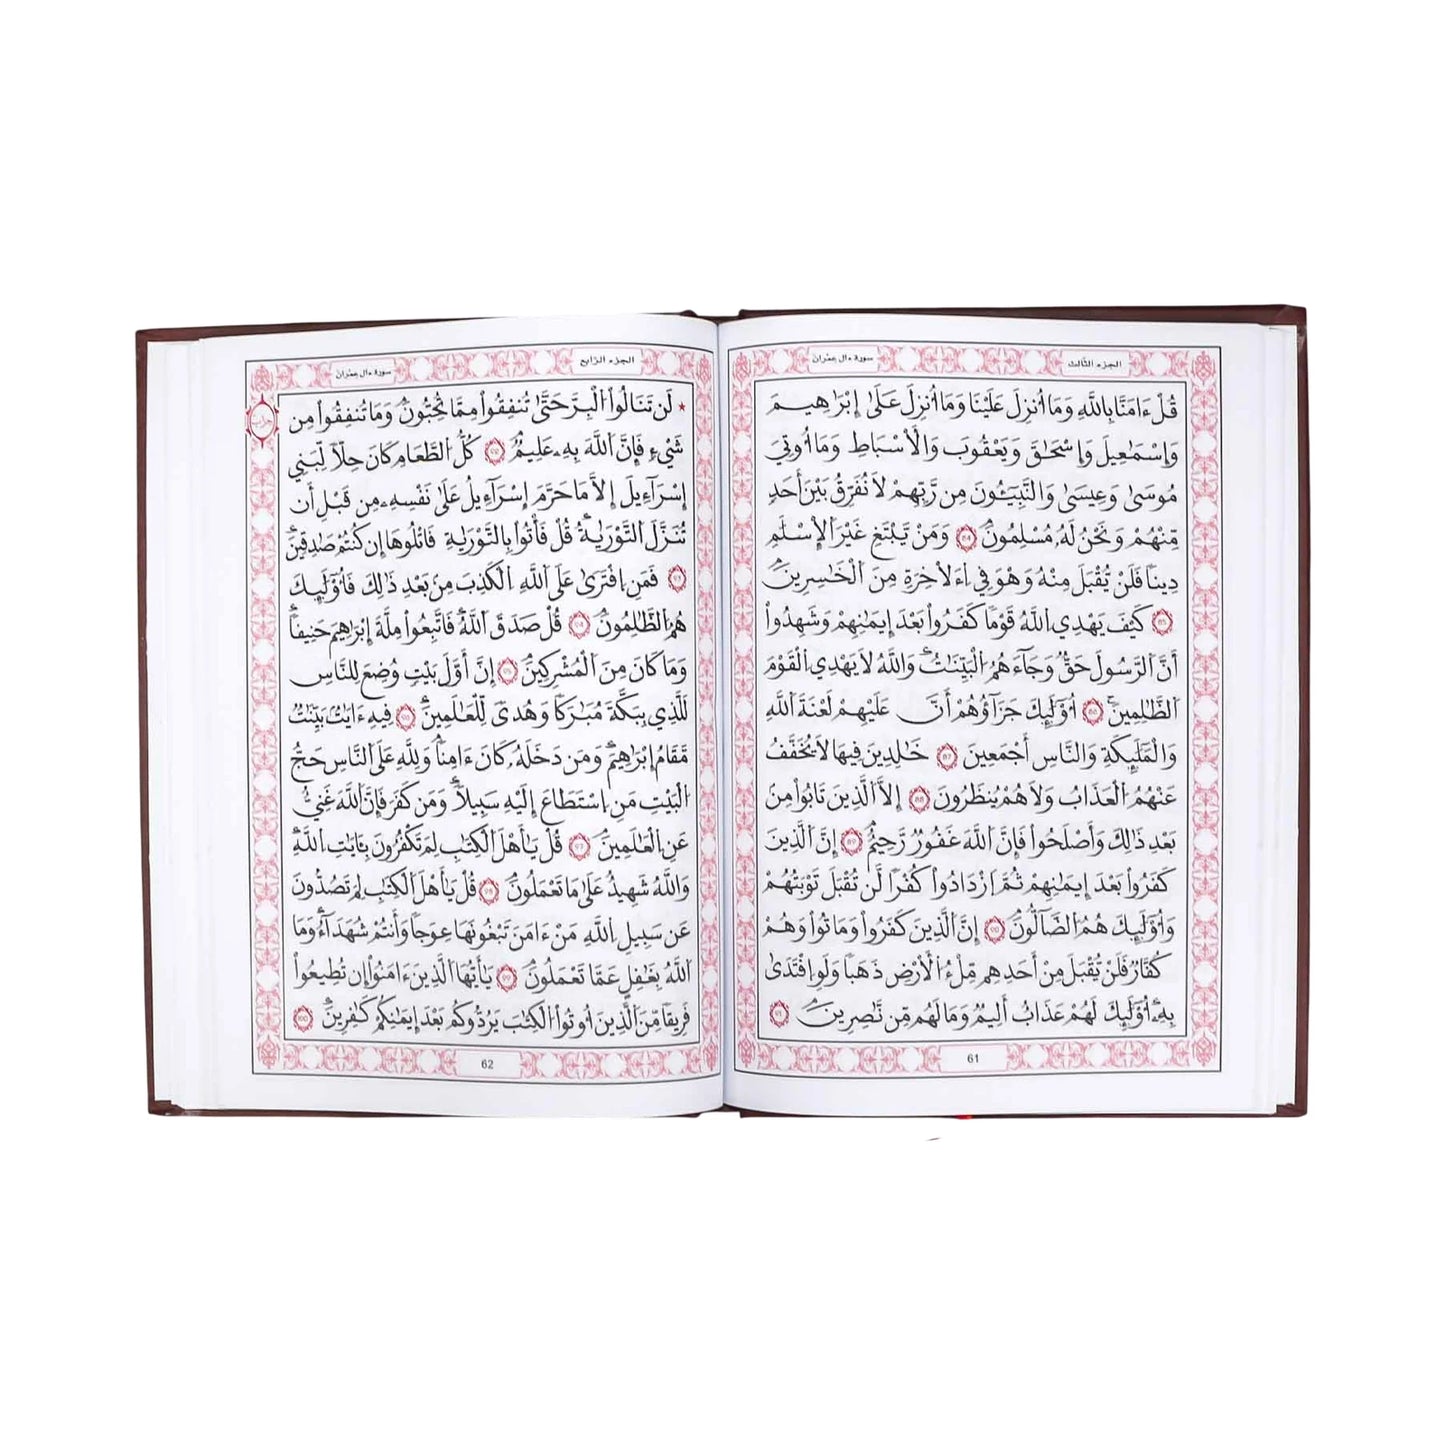 الجزء الثالث
سورة ءال عمران
قُلْ ءَامَنَّا بِاللَّهِ وَمَا أُنزِلَ عَلَيْنَا وَمَا أُنزِلَ عَلَىٰ إِبْرَاهِيمَ
وَإِسْمَاعِيلَ وَإِسْحَاقَ وَيَعْقُوبَ وَالْأَسْبَاطِ وَمَا أُوتِيَ
مُوسَىٰ وَعِيسَىٰ وَالنَّبِيئُونَ مِن رَّبِّهِمْ لَا نُفَرِّقُ بَيْنَ أَحَدٍ
مِّنْهُمْ وَنَحْنُ لَهُ مُسْلِمُونَ 84 وَمَنْ يَّبْتَغِ غَيْرَ الْإِسْلَٰمِ
دِيناً فَلَنْ يُّقْبَلَ مِنْهُ وَهُوَ فِي اءَلَاخِرَةِ مِنَ الْخَاسِرِينَ
85 كَيْفَ يَهْدِي اللَّهُ قَوْماً كَفَرُواْ بَعْدَ إِيمَٰنِهِمْ وَشَهِدُواْ
أَنَّ الرَّسُولَ حَقٌّ وَجَاءَهُمُ الْبَيِّنَٰتُ وَاللَّهُ لَا يَهْدِي الْقَوْمَ
الظَّٰلِمِينَ 86 أُوْلَٰئِكَ جَزَاؤُهُمْ أَنَّ عَلَيْهِمْ لَعْنَةَ اللَّهِ
وَالْمَلَٰئِكَةِ وَالنَّاسِ أَجْمَعِينَ 87 خَالِدِينَ فِيهَا لَا يُخَفَّفُ
عَنْهُمُ الْعَذَابُ وَلَا هُمْ يُنظَرُونَ 88 إِلَّا الَّذِينَ تَابُواْ مِنْ
بَعْدِ ذَٰلِكَ وَأَصْلَحُواْ فَإِنَّ اللَّهَ غَفُورٌ رَّحِيمٌ 89 إِنَّ الَّذِينَ
كَفَرُواْ بَعْدَ إِيمَٰنِهِمْ ثُمَّ ازْدَادُواْ كُفْراً لَّن تُقْبَلَ تَوْبَتُهُمْ
وَأُوْلَٰئِكَ هُمُ الضَّالُّونَ 90 إِنَّ الَّذِينَ كَفَرُواْ وَمَاتُواْ وَهُمْ
كُفَّارٌ فَلَنْ يُّقْبَلَ مِنْ أَحَدِهِم مِّلْءُ الْأَرْضِ ذَهَباً وَلَوِ افْتَدَىٰ
بِهِ أُوْلَٰئِكَ لَهُمْ عَذَابٌ أَلِيمٌ وَمَا لَهُم مِّن نَّاصِرِينَ 91
61
الجزء الرابع
سورة ءال عمران
حزب
لَن تَنَالُواْ الْبِرَّ حَتَّىٰ تُنفِقُواْ مِمَّا تُحِبُّونَ وَمَا تُنفِقُواْ مِن
شَيْءٍ فَإِنَّ اللَّهَ بِهِ عَلِيمٌ 92 كُلُّ الطَّعَامِ كَانَ حِلّاً لِّبَنِي
إِسْرَاءِيلَ إِلَّا مَا حَرَّمَ إِسْرَاءِيلُ عَلَىٰ نَفْسِهِ مِن قَبْلِ أَن
تُنَزَّلَ التَّوْرَيٰةُ قُلْ فَأْتُواْ بِالتَّوْرَيٰةِ فَاتْلُوهَا إِن كُنتُمْ صَادِقِينَ
93 فَمَنِ افْتَرَىٰ عَلَى اللَّهِ الْكَذِبَ مِنْ بَعْدِ ذَٰلِكَ فَأُوْلَٰئِكَ
هُمُ الظَّٰلِمُونَ 94 قُلْ صَدَقَ اللَّهُ فَاتَّبِعُواْ مِلَّةَ إِبْرَاهِيمَ حَنِيفاً
وَمَا كَانَ مِنَ الْمُشْرِكِينَ 95 إِنَّ أَوَّلَ بَيْتٍ وُضِعَ لِلنَّاسِ
لَلَّذِي بِبَكَّةَ مُبَارَكاً وَهُدىً لِّلْعَالَمِينَ 96 فِيهِ ءَايَٰتٌ بَيِّنَٰتٌ
مَّقَامُ إِبْرَاهِيمَ وَمَن دَخَلَهُ كَانَ ءَامِناً وَلِلَّهِ عَلَى النَّاسِ حَجُّ
الْبَيْتِ مَنِ اسْتَطَاعَ إِلَيْهِ سَبِيلاً وَمَن كَفَرَ فَإِنَّ اللَّهَ غَنِيٌّ
عَنِ الْعَالَمِينَ 97 قُلْ يَا أَهْلَ الْكِتَٰبِ لِمَ تَكْفُرُونَ بِئَايَٰتِ اللَّهِ
وَاللَّهُ شَهِيدٌ عَلَىٰ مَا تَعْمَلُونَ 98 قُلْ يَا أَهْلَ الْكِتَٰبِ لِمَ تَصُدُّونَ
عَن سَبِيلِ اللَّهِ مَنْ ءَامَنَ تَبْغُونَهَا عِوَجاً وَأَنتُمْ شُهَدَاءُ وَمَا
اللَّهُ بِغَٰفِلٍ عَمَّا تَعْمَلُونَ 99 يَا أَيُّهَا الَّذِينَ ءَامَنُواْ إِن تُطِيعُواْ
فَرِيقاً مِّنَ الَّذِينَ أُوتُواْ الْكِتَٰبَ يَرُدُّوكُم بَعْدَ إِيمَٰنِكُمْ كَٰفِرِينَ 100
62